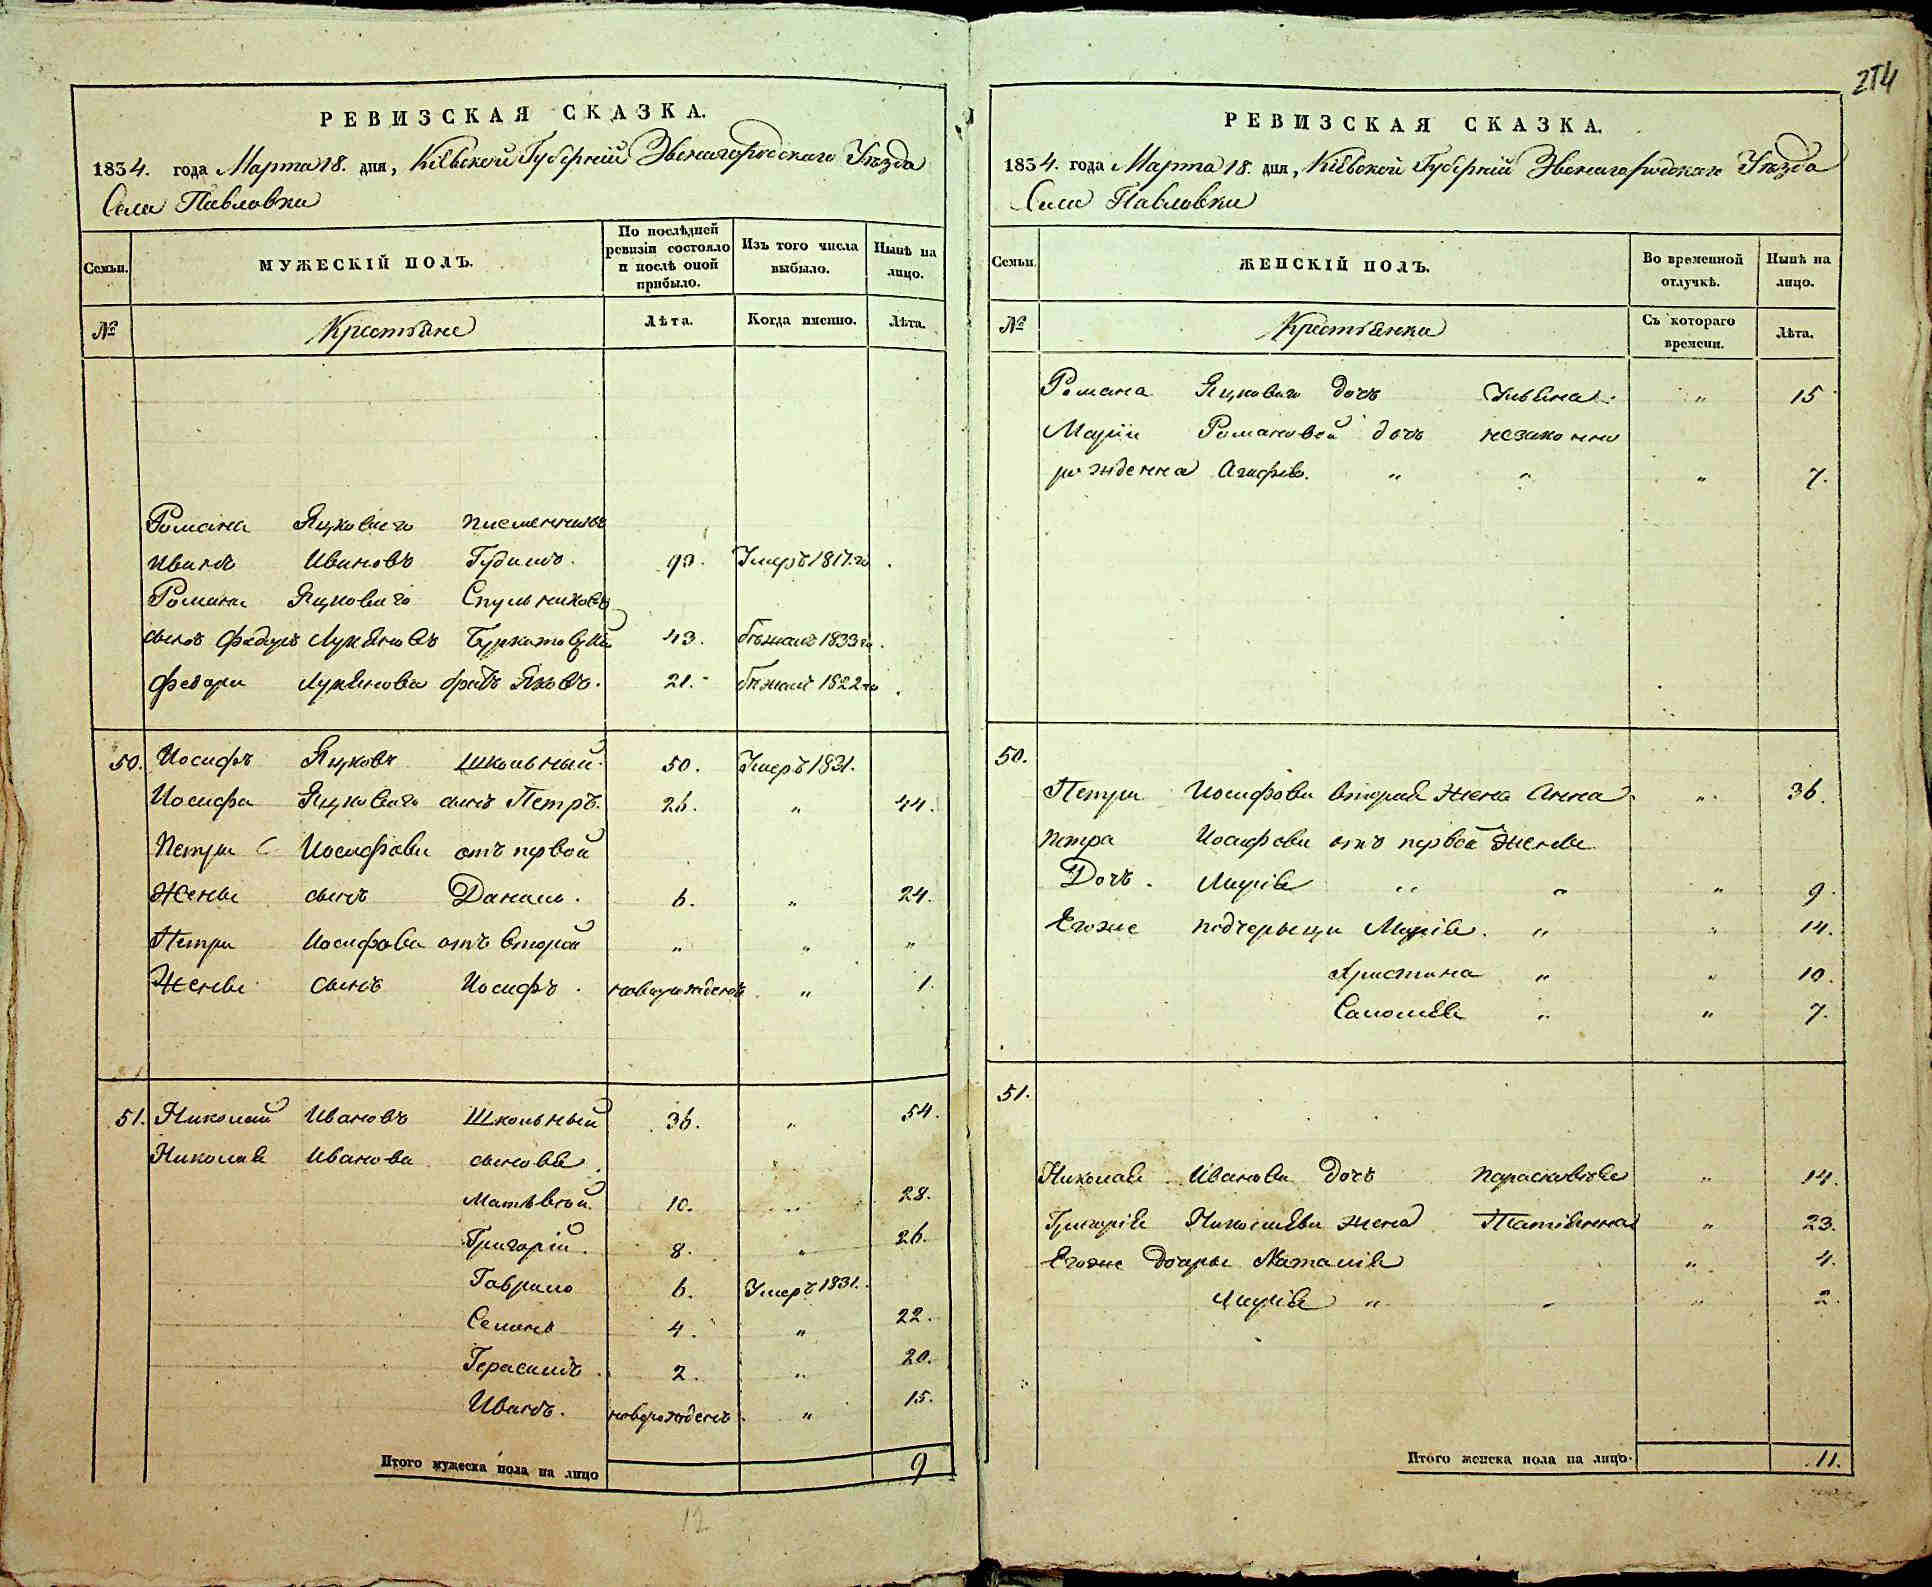 214
РЕВИЗСКАЯ СКАЗКА.
1834. года Марта 18. дня, Кіевской Губерніи Звенигородского Уезда
Села Павловки
Семьи.
МУЖЕСКІЙ ПОЛЪ.
По послѣдней ревизіи состояло и послѣ оной прибыло.
Изъ того числа выбыло.
Нынѣ на лицо.
№
Крестьяне
Лѣта.
Когда именно.
Лѣта.
Романа Яцкового
Иванъ Ивановъ 93. Умеръ 1817.го
Романа Яцкового
сынъ Федоръ Лукяновъ 43. бѣжалъ 1833го
Федора Лукянова братъ Яковъ. 21. бѣжалъ 1822го
50. Иосифъ Яцковъ Школьный. 50. Умеръ 1831.
Иосифа Яцкового сынъ Петръ. 26. " 44.
Петра Иосифова отъ первой
жены сынъ Данило. 6. " 24.
Петра Иосифова отъ второй " " "
жены сынъ Иосифъ. новорожденъ " 1.
51. Николай Ивановъ Школьный 36. " 54.
Николая Иванова сыновья
Матвѣй. 10. " 28.
Григорій. 8. " 26.
Гаврило 6. Умеръ 1831.
Семенъ 4. " 22.
Герасимъ. 2. " 20.
Иванъ. новорожденъ " 15.
Итого мужеска пола на лицо 9
РЕВИЗСКАЯ СКАЗКА.
1834. года Марта 18. дня, Кіевской Губерніи Звенигородского Уезда
Села Павловки
Семьи.
ЖЕНСКІЙ ПОЛЪ.
Во временной отлучкѣ.
Нынѣ на лицо.
№
Крестьянки
Съ котораго времени.
Лѣта.
Романа Яцкового дочь Ульяна. " 15
Маріи Романовой дочь незаконно
рожденна Агафія. " " " 7.
50.
Петра Иосифова вторая жена Анна. " 36.
Петра Иосифова отъ первой жены
Дочь. Марія " " " 9.
Егоже подчерыци Марія. " " 14.
Христина " " 10.
Саломія " " 7.
51.
Николая Иванова дочь Параскевія " 14.
Григорія Николаева жена Татіянна " 23.
Егоже дочры Наталія " 4.
Марія " " " 2.
Итого женска пола на лицо. 11.